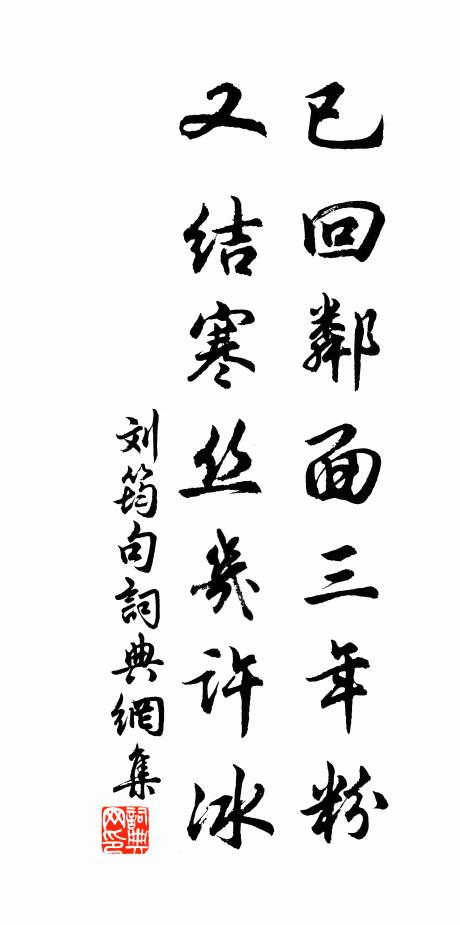 已回鄰面三年粉
又结寒丝幾许冰
刘筠句詞典網集
詞典网印